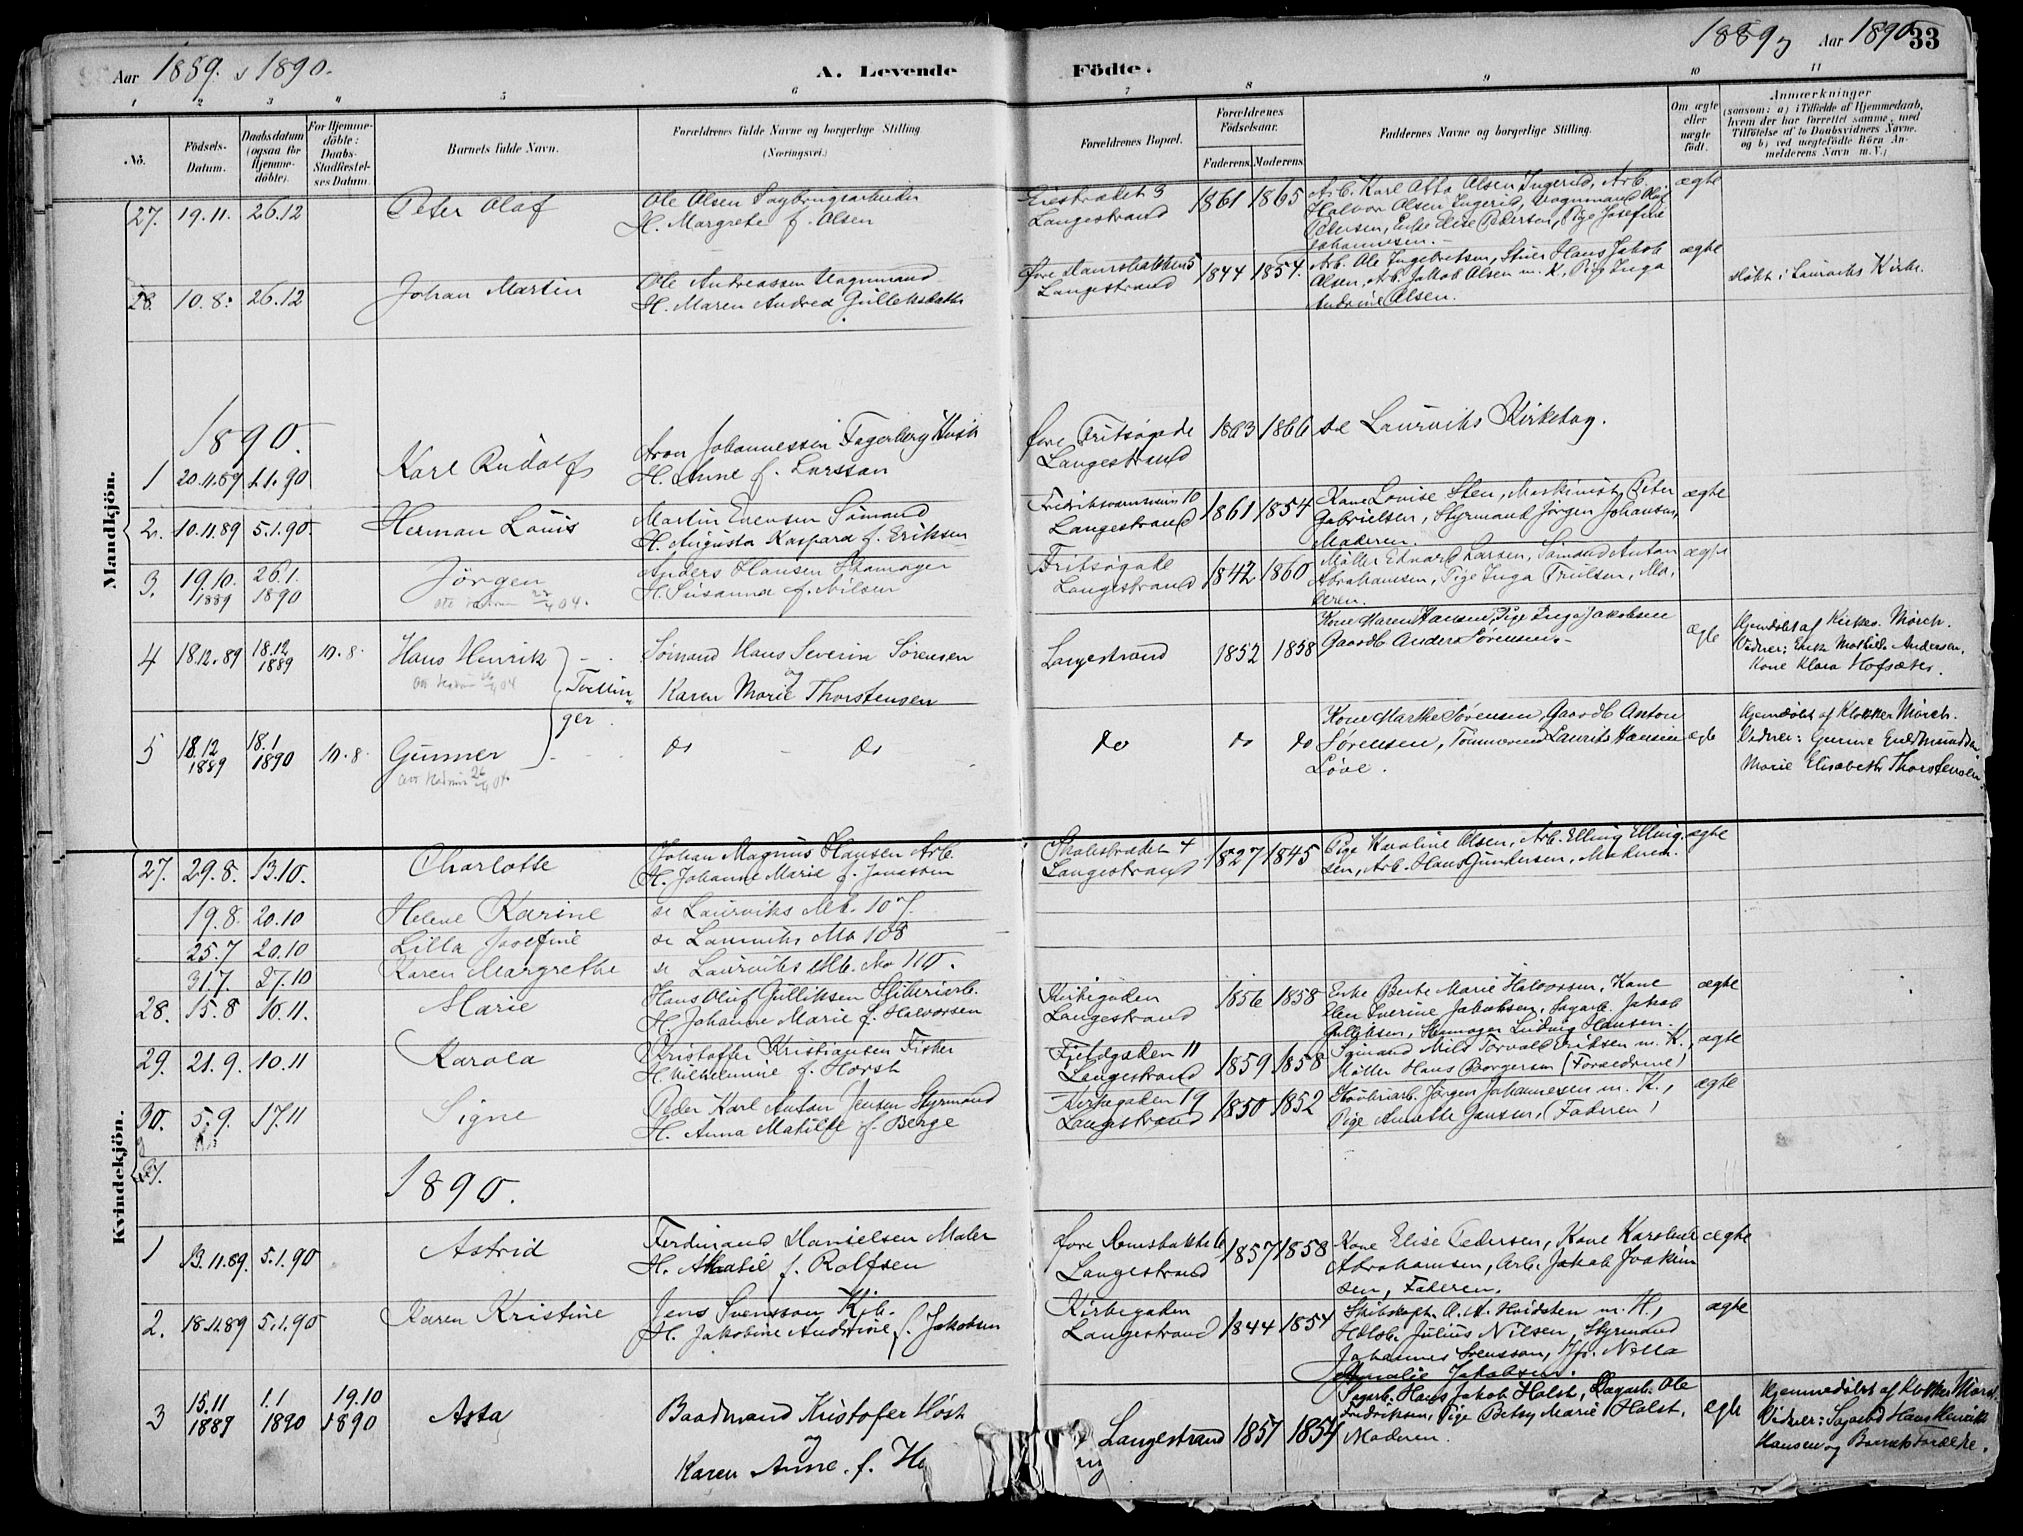 Aar 1889 & 1890.
A. Levende Födte.
1889 & Aar 1890 33
1 2 3 4 5 6 7 8 9 10 11
No.
Födsels-Datum.
Daabsdatum (ogsaa for Hjemmedöbte).
For Hjemmedöbte: Daabs-Stadfæstelses Datum.
Barnets fulde Navn.
Forældrenes fulde Navne og borgerlige Stilling
(Næringsvei.)
Forældrenes Bopæl.
Forældrenes Födselsaar.
Faderens. Moderens.
Faddernes Navne og borgerlige Stilling.
Om ægte eller uægte födt.
Anmærkninger
(saasom: a) i Tilfælde af Hjemmedaab, hvem der har forrettet samme, med Tilföielse af to Daabsvidners Navne, og b) ved uægtefödte Börn Anmelderens Navn m. V.)
Mandkjön.
27. 19.11. 26.12 Peter Olaf
Ole Olsen Sagbrugsarbeider
H. Margrete f. Olsen
Langestrand 1861 1865
Arb. Karl Otto Olsen Ingerid, Arb.
Halvor Olsen Ingerid, Vognmand Olaf
Pedersen, Enke Else Pedersen, Pige Josefine
Johannesen.
ægte
28. 10.8. 26.12 Johan Martin
Ole Andreassen Vognmand
H. Maren Andrea Gulleksdatter
Langestrand 1844 1854.
Arb. Ole Ingebretsen, Stuer Hans Jakob
Olsen, Arb. Jakob Olsen m. K, Pige Inga
Andrine Olsen.
ægte
döbt i Laurviks Kirke.
1890.
1 20.11.89 1.1.90 Karl Rudolf
Aron Johannessen Fagerberg
H. Anne f. Larssen
övre Fritsøgade
Langestrand 1863 1866
se Laurviks Kirkebog.
2. 10.11.89 5.1.90. Herman Louis
Martin Evensen Sömand
H. Augusta Kaspara f. Eriksen
10
Langestrand 1861 1854
Kone Lovise Sten, Maskinist Peter
Gabrielsen, Styrmand Jörgen Johansen,
Moderen.
ægte
3. 19.10. 1889 26.1. 1890 Jörgen
Anders Hansen Skomager
H. Susanna f. Nilsen
Fritsøgade
Langestrand 1842 1860
Möller Edvard Larsen, Sömand Anton
Abrahamsen, Pige Inga Trulsen, Moderen.
ægte
4 18.12.89 18.12 1889 10.8. Hans Henrik
Tvillinger
Sömand Hans Severin Sørensen
og
Karen Marie Thorstensen
Langestrand 1852 1858
Kone Maren Hansen, Pige Inga Jakobsen
Gaardb. Anders Sørensen.
ægte
Hjemdöbt af Kirkes. Mörch.
Vidner: Enke Mathilde Andersen,
Kone Klara Hofsæter.
5 18.12 1889 18.1 1890 10.8. Gunner
do do
do do do
Kone Marthe Sørensen, Gaardb Anton
Sørensen, Tömmermd Laurits Hansen
Löve.
ægte
Hjemdöbt af Klokker Mörch.
Vidner: Gurine Endresen
Marie Elisabeth Thorstensen
Kvindekjön.
27. 29.8. 13.10. Charlotte
Johan Magnus Hansen Arb.
H. Johanne Marie f. Jonassen
4
Langestrand 1827 1845
Pige Karoline Olsen, Arb. Elling Ellingsen, Arb. Hans Gundersen, Moderen.
ægte
19.8 20.10 Helene Karine se Laurviks Mb. 107.
25.7 20.10 Lilla Josefine se Laurviks Mb 108
31.7. 27.10 Karen Margrethe se Laurviks Mb. No 110.
28. 15.8 10.11. Marie
Hans Oluf Gulliksen Stöberiarb.
H. Johanne Marie f. Halvorsen
Kirkegaden
Langestrand 1856 1858
Enke Berte Marie Halvorsen, Kone
Elen Severine Jakobsen, Sagarb. Jakob
Gulliksen, Skomager Ludvig Hansen.
ægte
29. 21.9. 10.11 Karola
Kristoffer Kristiansen Fisker
H. Vilhelmine f. Horst
Fjeldgaden 11
Langestrand 1859 1858
Sömand Nils Torvald Eriksen m. K.,
Möller Hans Borgersen (Forældrene)
ægte
30. 5.9. 17.11 Signe
Peder Karl Anton Jensen Styrmand
H. Anna Matilde f. Berge
Kirkegaden 19
Langestrand 1850 1852
Stöberiarb. Jörgen Johannesen m. K.,
Pige Anette Jansen, (Faderen)
ægte
1890.
1 13.11.89. 5.1.90 Astrid
Ferdinand Danielsen Maler
H. Amalie f. Rolfsen
övre 6
Langestrand 1857 1858
Kone Elise Pedersen, Kone Karoline
Abrahamsen, Arb. Jakob Joakimsen, Faderen.
ægte
2. 18.11.89 5.1.90 Karen Kristine
Jens Svensson
H. Jakobine Andrine f. Jakobsen
Kirkegaden
Langestrand 1844 1854
Skibskapt. A. A. Hvidsten m. H,
Julius Nilsen, Styrmand
Johannes Svensson, Nella
Amalie Jakobsen.
ægte
3 15.11 1889 1.1 1890 19.10 1890 Asta
Baadmand Kristofer Höst
og
Karen Anne f. H
Langestrand 1857 1854
Sagarb. Hans Jakob Holst, Dagarb. Ole
Fredriksen, Pige Betsy Marie Holst,
Moderen.
ægte
Hjemmedöbt af Klokker Mörch
Vidner: Sagarbd Hans Henrik
Hansen og Barnets Forældre.